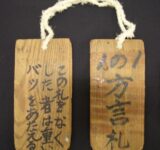 の方言札
この札をなく
した者は重く
バツをあたえる